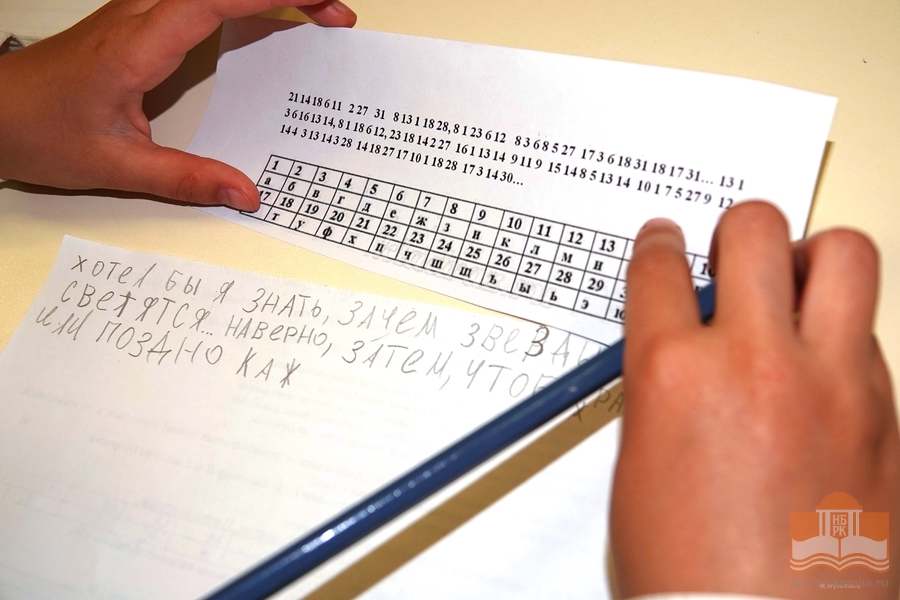 21 14 18 6 11 2 27 31 8 13 1 18 28, 8 1 23 6 12 8 3 6 8 5 27 17 3 6 18 31 18 17 31... 13 1
3 6 16 13 14, 8 1 18 6 12, 23 18 14 2 27 16 1 13 14 9 11 9 15 14 8 5 13 14 10 1 7 5 27 9 12
14 4 3 13 14 3 28 14 18 27 17 10 1 18 28 17 3 14 30...
1 2 3 4 5 6 7 8 9 10 11 12 13
а б в г д е ж з и к л м н
17 18 19 20 21 22 23 24 25 26 27 28 29
т у ф х ц ч ш щ ъ ы ь э ю
ХОТЕЛ БЫ Я ЗНАТЬ, ЗАЧЕМ ЗВЕЗД
СВЕТЯТСЯ... НАВЕРНО, ЗАТЕМ, ЧТОБ
ИЛИ ПОЗДНО КАЖ
НБ
РК